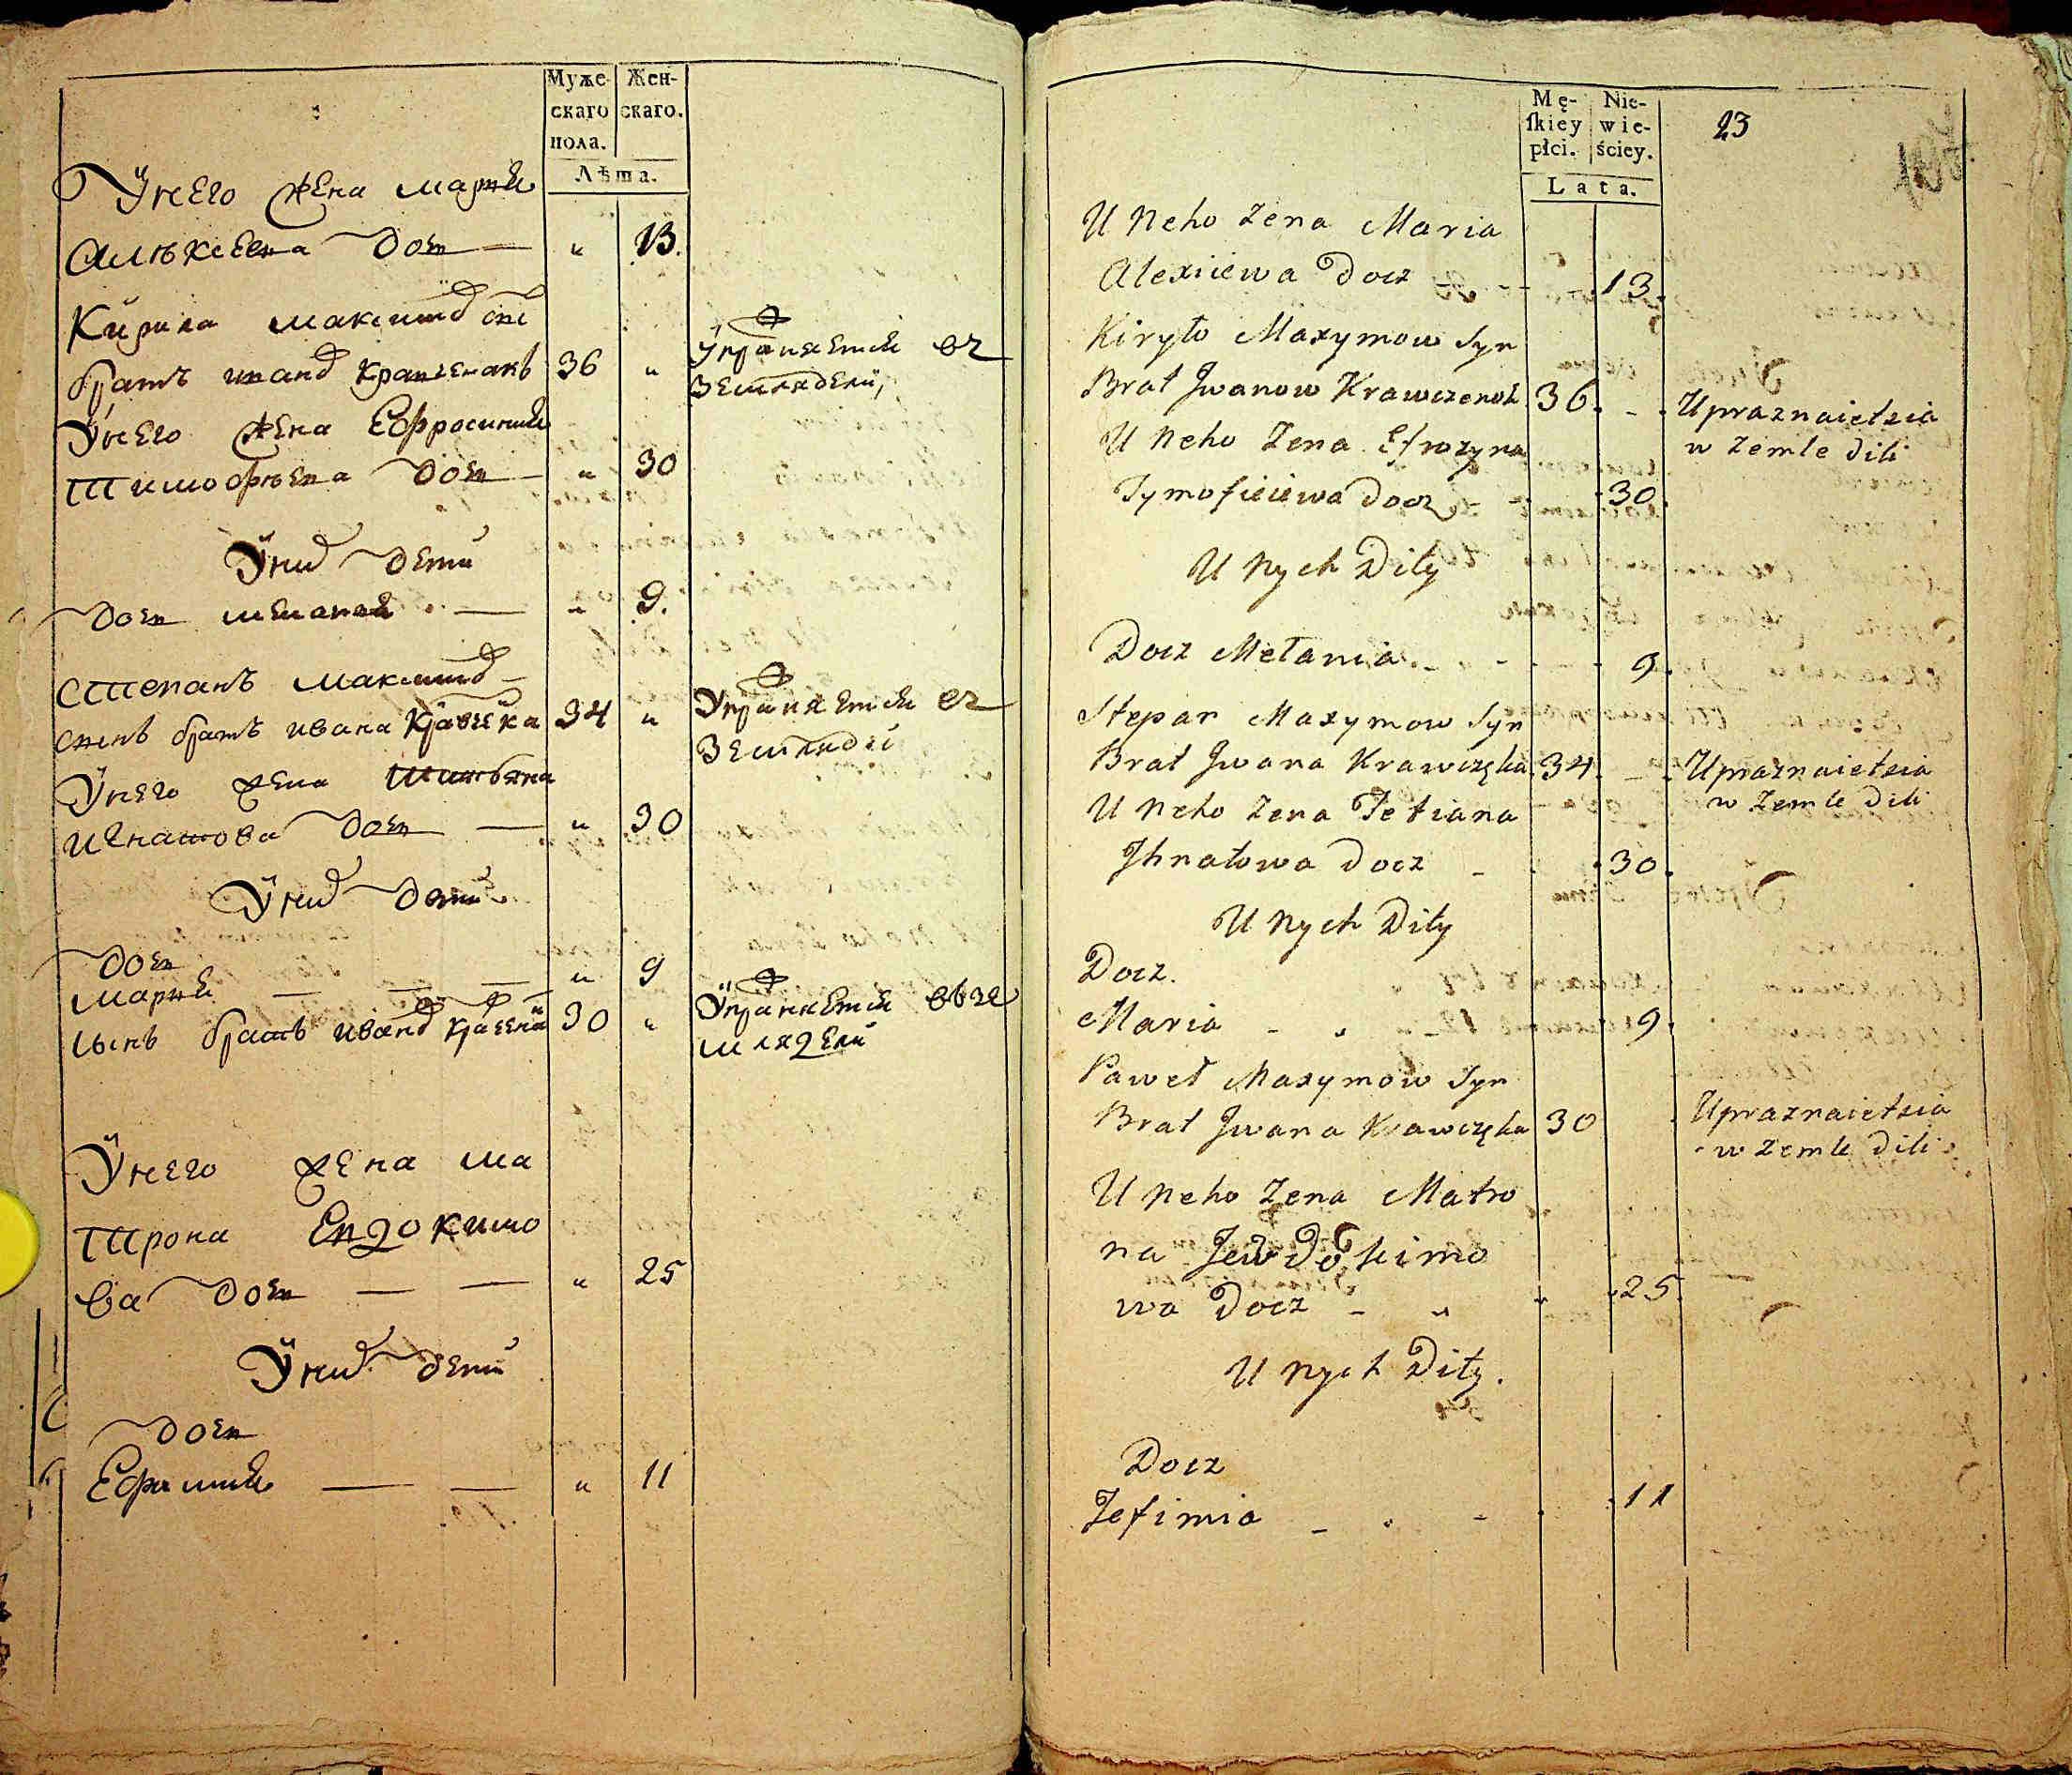 Муже-
скаго
пола.
Жен-
скаго.
Лѣта.
У него жена Мария
Алѣксеева дочь — " 13.
Кирила Максимовъ снъ
братъ Иванов Кравченакъ 36 "
Упражняется въ
земледелии,
У него жена Ефросиния
Тимофѣева дочь — " 30
У них дети
дочь Мемания — " 9.
Степанъ Максимов
сынъ братъ Ивана Кравчека 34 "
Упражняется въ
земледелi
У него жена Татьяна
Игнатова дочь — " 30
У них дети
дочь
Мария — — — " 9
сынъ братъ Иванов Кравчен 30 "
Упражняется въ зе
мледели
У него жена Ма
трона Евдокимо
ва дочь — — " 25
У них дети
дочь
Ефимия — — " 11
Mę-
skiey
płci.
Nie-
wie-
ściey.
Lata.
23
U neho Zena Maria
Alexiiewa Docz - - - 13.
Kiryło Maxymow Syn
Brat Jwanow Krawczenok 36. -
Upraznaietsia
w Zemle dili
U neho Zena Efrozyna
Tymofieiewa Docz - - 30.
U nych Dity
Docz Mełania - - - - 9.
Stepan Maxymow Syn
Brat Jwana Krawczęka 34. -
Upraznaietsia
w Zemle dili
U neho Zena Tetiana
Jhnatowa Docz - . 30.
U nych Dity
Docz.
Maria - " 9.
Paweł Maxymow Syn
Brat Jwana Krawczęka 30
Upraznaietsia
w Zemle dili
U neho Zena Matro
na Jewdokimo
wa Docz - " " 25.
U nych Dity.
Docz
Jefimia - . - . 11